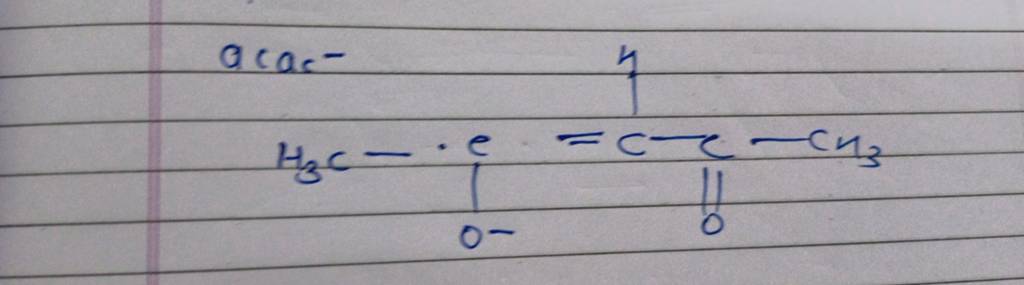 acac-
H
H3C — C = C — C — CH3
O- O